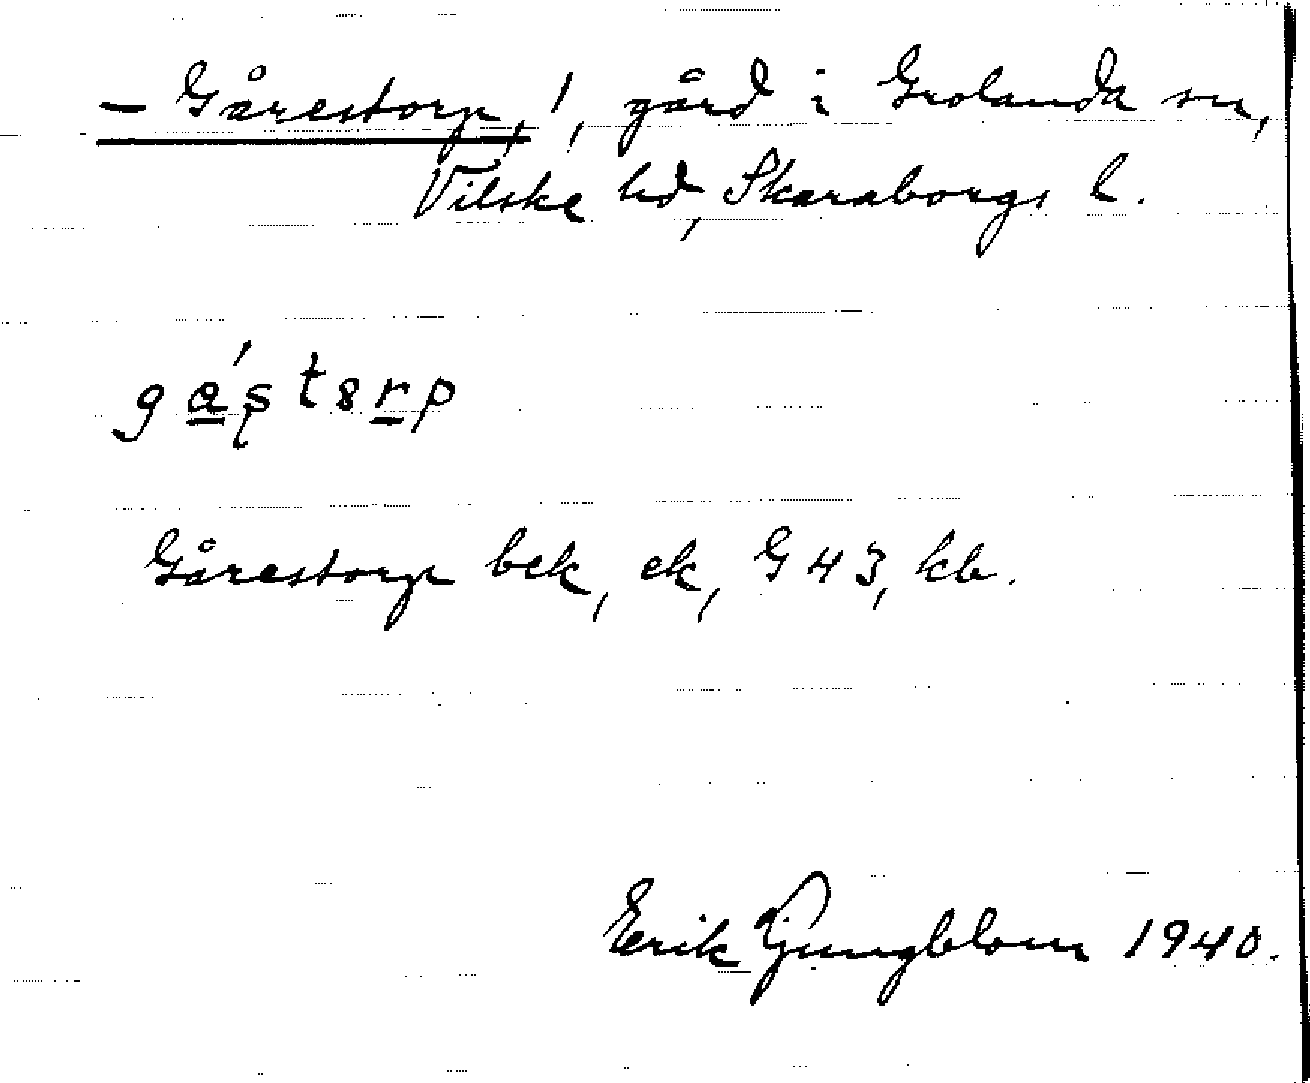 – Gårestorp, !, gård i Grolanda sn,
Vilske hd, Skaraborgs l.
Gårestorp bek, ek, G 43, kb.
Erik Ljungblom 1940.